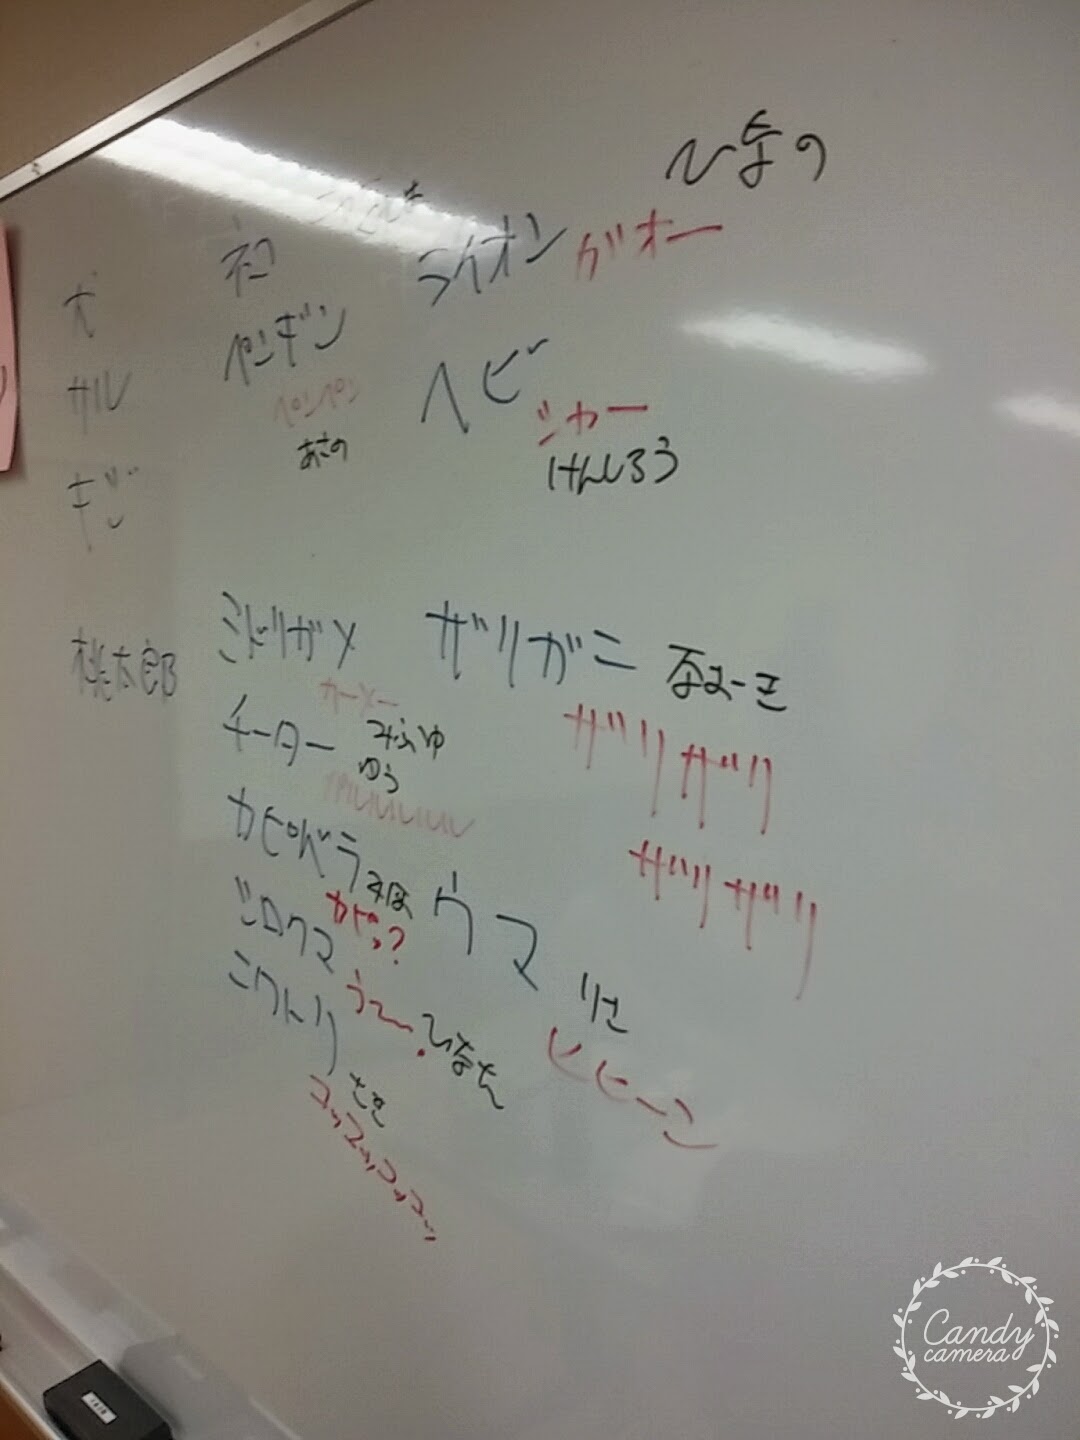 ひなの
ネコ
ライオン ガオー
サル
ペンギン
ペンペン
あさの
ヘビ
シャー
けんしろう
キジ
桃太郎
ミドリガメ
カーメー
ザリガニ
なおーき
チーター
みふゆ
ゆう
ザリザリ
ザリザリ
カピバラ
みほ
カピっ?
ウマ
りさ
ヒヒーン
シロクマ
うー
ひなた
ニワトリ
さき
コッコッコッコッ
Candy
camera